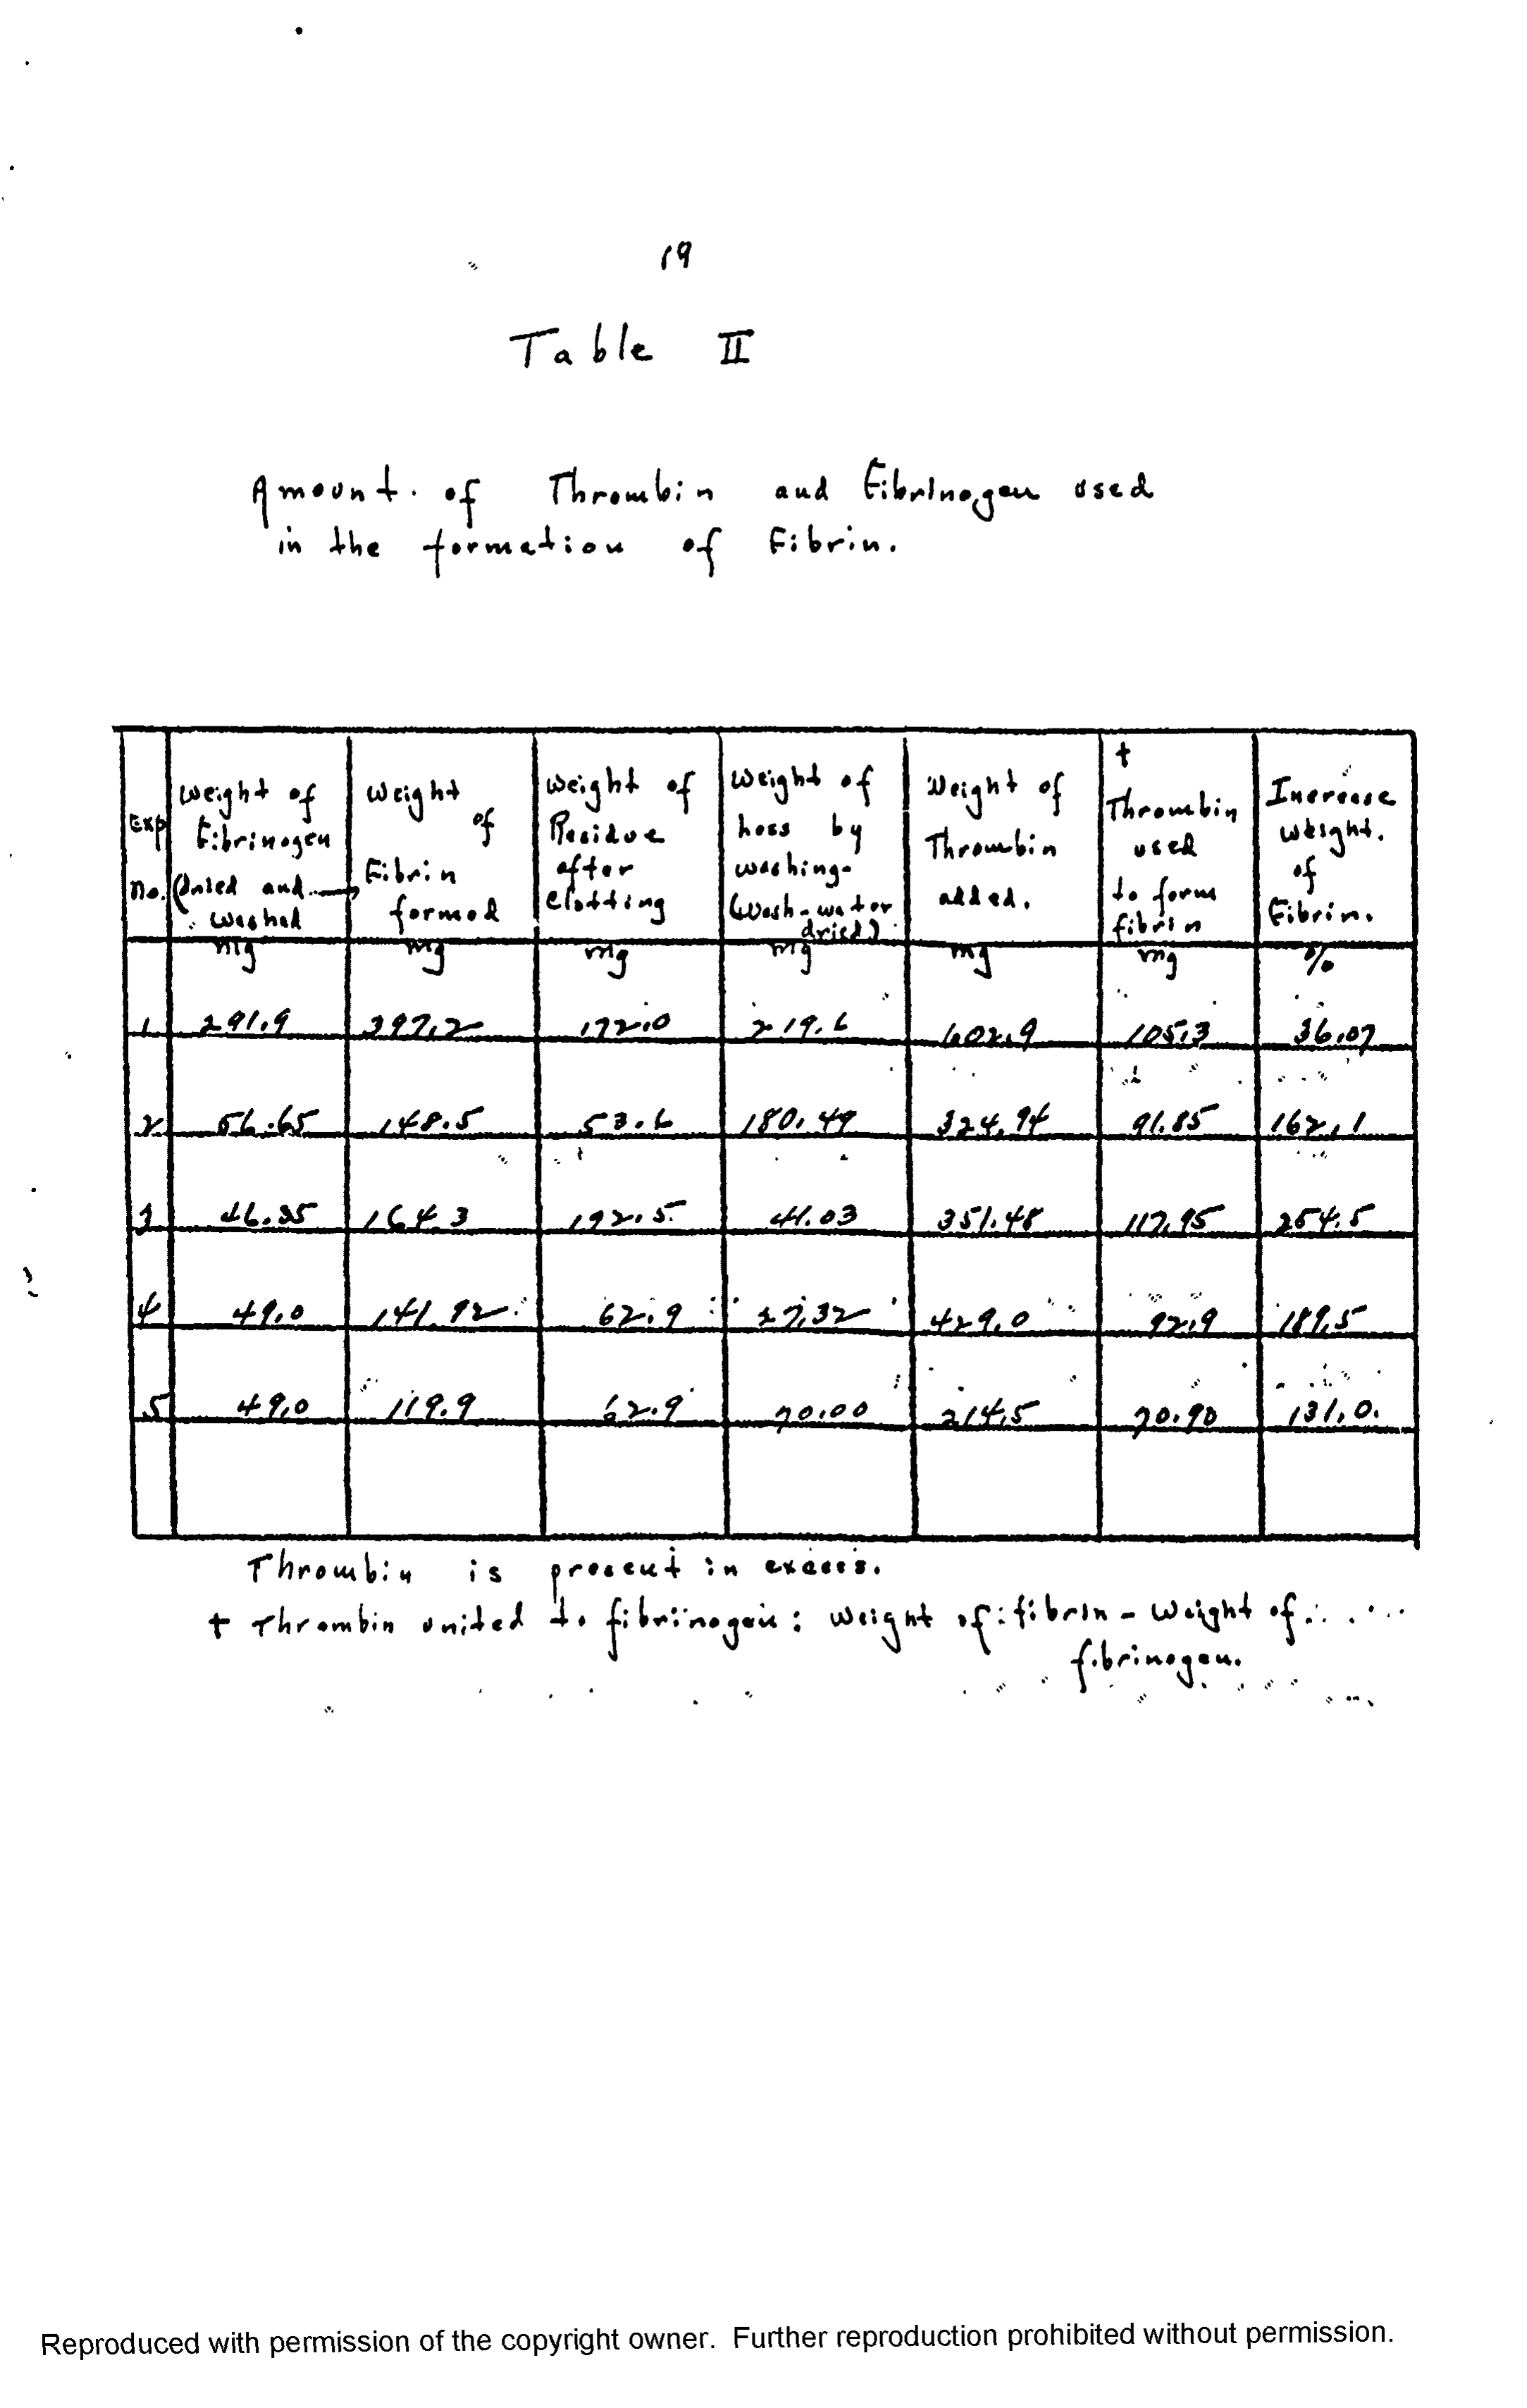 19
Table II
Amount. of Thrombin and Fibrinogen used
in the formation of Fibrin.
Exp no. | Weight of Fibrinogen (Dried and washed | Weight of Fibrin formed | Weight of Residue after clotting | Weight of Loss by washing- (Wash-water dried) | Weight of Thrombin added. | † Thrombin used to form fibrin | Increase weight. of Fibrin.
mg | mg | mg | mg | mg | mg | %
1 | 291.9 | 397.2 | 172.0 | 219.6 | 602.9 | 105.3 | 36.07
2 | 56.65 | 148.5 | 53.6 | 180.49 | 324.94 | 91.85 | 162.1
3 | 46.35 | 164.3 | 192.5 | 41.03 | 351.48 | 117.95 | 254.5
4 | 49.0 | 141.92 | 62.9 | 27.32 | 429.0 | 92.9 | 189.5
5 | 49.0 | 119.9 | 62.9 | 70.00 | 214.5 | 70.90 | 131.0.
Thrombin is present in excess.
† Thrombin united to fibrinogen: Weight of fibrin - Weight of
fibrinogen.
Reproduced with permission of the copyright owner. Further reproduction prohibited without permission.